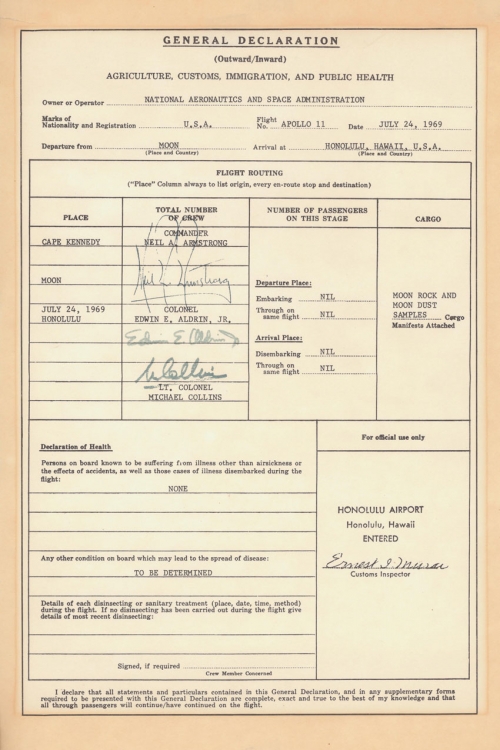 GENERAL DECLARATION
(Outward/Inward)
AGRICULTURE, CUSTOMS, IMMIGRATION, AND PUBLIC HEALTH
Owner or Operator NATIONAL AERONAUTICS AND SPACE ADMINISTRATION
Marks of
Nationality and Registration U.S.A. Flight No. APOLLO 11 Date JULY 24, 1969
Departure from MOON Arrival at HONOLULU, HAWAII, U.S.A.
(Place and Country) (Place and Country)
FLIGHT ROUTING
("Place" Column always to list origin, every en-route stop and destination)
PLACE
TOTAL NUMBER
OF CREW
NUMBER OF PASSENGERS
ON THIS STAGE
CARGO
CAPE KENNEDY
COMMANDER
NEIL A. ARMSTRONG
MOON
Neil A. Armstrong
JULY 24, 1969
HONOLULU
COLONEL
EDWIN E. ALDRIN, JR.
Edwin E. Aldrin Jr
M Collins
LT. COLONEL
MICHAEL COLLINS
Departure Place:
Embarking NIL
Through on
same flight NIL
Arrival Place:
Disembarking NIL
Through on
same flight NIL
MOON ROCK AND
MOON DUST
SAMPLES Cargo
Manifests Attached
Declaration of Health
Persons on board known to be suffering from illness other than airsickness or
the effects of accidents, as well as those cases of illness disembarked during the
flight:
NONE
Any other condition on board which may lead to the spread of disease:
TO BE DETERMINED
Details of each disinsecting or sanitary treatment (place, date, time, method)
during the flight. If no disinsecting has been carried out during the flight give
details of most recent disinsecting:
Signed, if required
Crew Member Concerned
For official use only
HONOLULU AIRPORT
Honolulu, Hawaii
ENTERED
Ernest I. Murai
Customs Inspector
I declare that all statements and particulars contained in this General Declaration, and in any supplementary forms
required to be presented with this General Declaration are complete, exact and true to the best of my knowledge and that
all through passengers will continue/have continued on the flight.